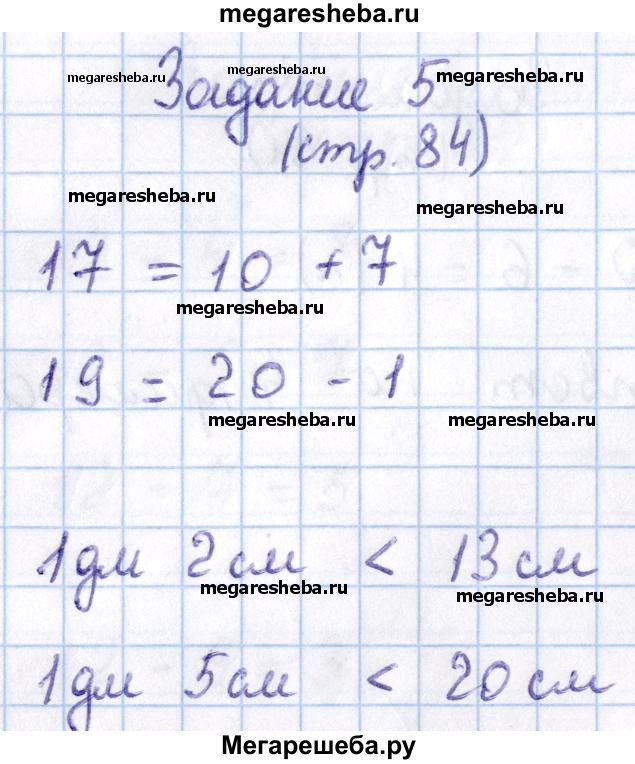 megaresheba.ru
megaresheba.ru megaresheba.ru megaresheba.ru
Задание 5
(стр. 84)
megaresheba.ru megaresheba.ru
17 = 10 + 7
megaresheba.ru
19 = 20 - 1
megaresheba.ru megaresheba.ru
1 дм 2 см < 13 см
megaresheba.ru megaresheba.ru
1 дм 5 см < 20 см
Мегарешеба.ру